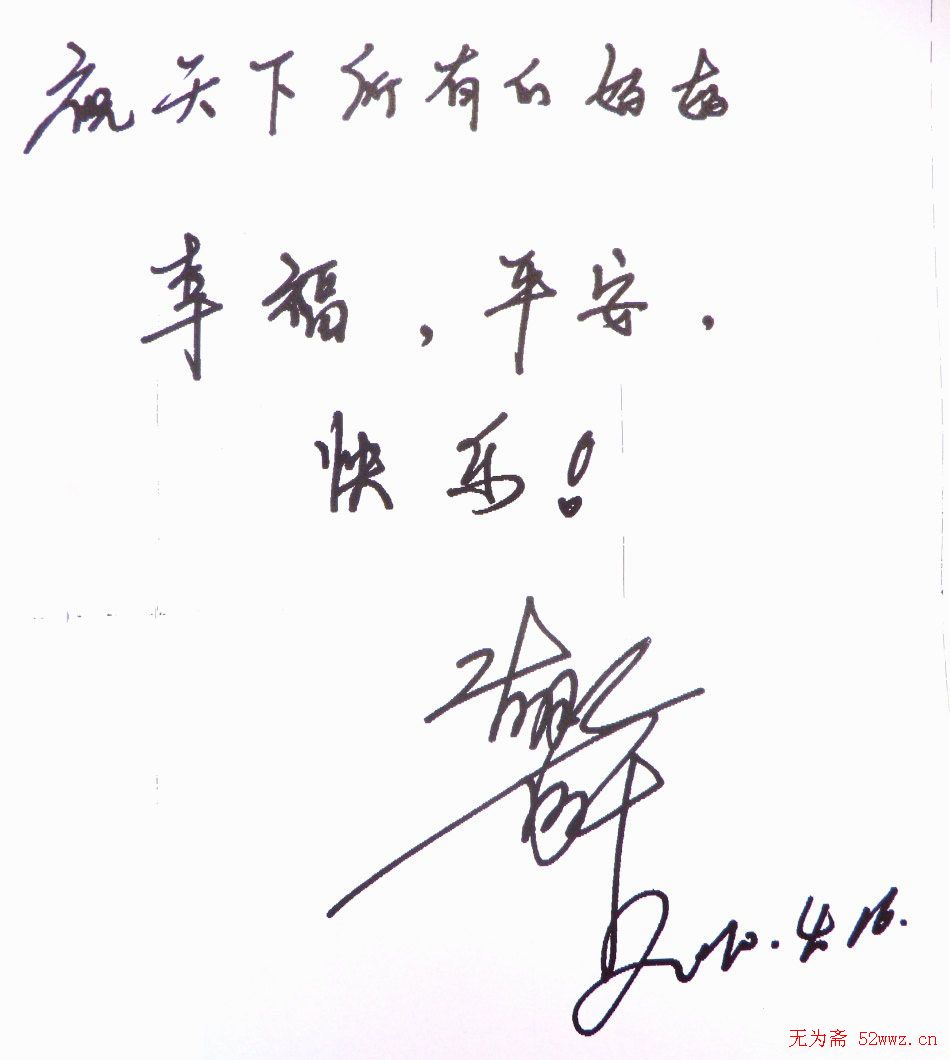 祝天下所有的妈妈
幸福，平安，
快乐！
2010.4.16.
无为斋 52wwz.cn